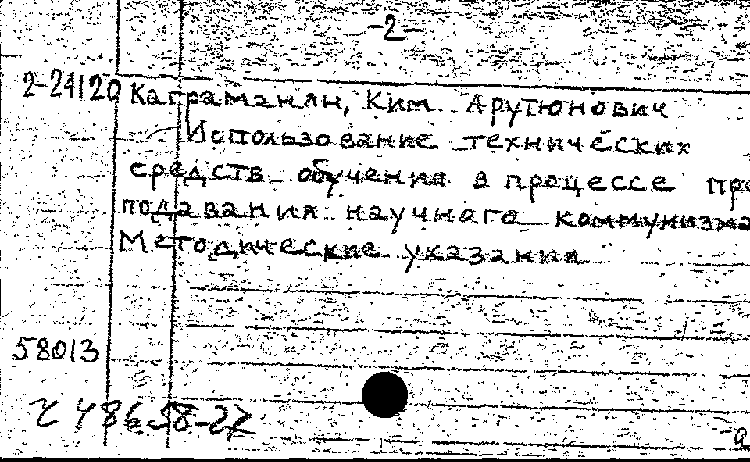 -2-
2-24120 Каграманян, Ким Арутюнович
Использование технических
средств обучения в процессе пре
подавания научного коммунизма
Методические указания
58013